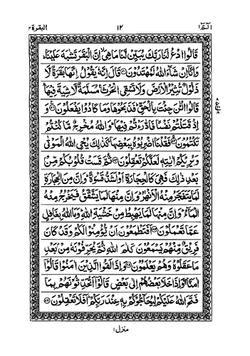 الٓمّٓ ١ ١٢ البقرة ٢
قَالُوا ادْعُ لَنَا رَبَّكَ يُبَيِّنْ لَّنَا مَا هِيَ اِنَّ الْبَقَرَ تَشٰبَهَ عَلَيْنَا
وَاِنَّآ اِنْ شَآءَ اللّٰهُ لَمُهْتَدُوْنَ قَالَ اِنَّهٗ يَقُوْلُ اِنَّهَا بَقَرَةٌ لَّا
ذَلُوْلٌ تُثِيْرُ الْاَرْضَ وَلَا تَسْقِي الْحَرْثَ مُسَلَّمَةٌ لَّا شِيَةَ فِيْهَا
قَالُوا الْـٰٔنَ جِئْتَ بِالْحَقِّ فَذَبَحُوْهَا وَمَا كَادُوْا يَفْعَلُوْنَ وَ
اِذْ قَتَلْتُمْ نَفْسًا فَادّٰرَءْتُمْ فِيْهَا وَاللّٰهُ مُخْرِجٌ مَّا كُنْتُمْ
تَكْتُمُوْنَ فَقُلْنَا اضْرِبُوْهُ بِبَعْضِهَا كَذٰلِكَ يُحْيِ اللّٰهُ الْمَوْتٰى
وَيُرِيْكُمْ اٰيٰتِهٖ لَعَلَّكُمْ تَعْقِلُوْنَ ثُمَّ قَسَتْ قُلُوْبُكُمْ مِّنْ
بَعْدِ ذٰلِكَ فَهِيَ كَالْحِجَارَةِ اَوْ اَشَدُّ قَسْوَةً وَاِنَّ مِنَ الْحِجَارَةِ
لَمَا يَتَفَجَّرُ مِنْهُ الْاَنْهٰرُ وَاِنَّ مِنْهَا لَمَا يَشَّقَّقُ فَيَخْرُجُ مِنْهُ
الْمَآءُ وَاِنَّ مِنْهَا لَمَا يَهْبِطُ مِنْ خَشْيَةِ اللّٰهِ وَمَا اللّٰهُ بِغَافِلٍ
عَمَّا تَعْمَلُوْنَ اَفَتَطْمَعُوْنَ اَنْ يُّؤْمِنُوْا لَكُمْ وَقَدْ كَانَ
فَرِيْقٌ مِّنْهُمْ يَسْمَعُوْنَ كَلٰمَ اللّٰهِ ثُمَّ يُحَرِّفُوْنَهٗ مِنْۢ بَعْدِ
مَا عَقَلُوْهُ وَهُمْ يَعْلَمُوْنَ وَاِذَا لَقُوا الَّذِيْنَ اٰمَنُوْا قَالُوْٓا
اٰمَنَّا وَاِذَا خَلَا بَعْضُهُمْ اِلٰى بَعْضٍ قَالُوْٓا اَتُحَدِّثُوْنَهُمْ بِمَا
فَتَحَ اللّٰهُ عَلَيْكُمْ لِيُحَآجُّوْكُمْ بِهٖ عِنْدَ رَبِّكُمْ اَفَلَا تَعْقِلُوْنَ
منزل ١